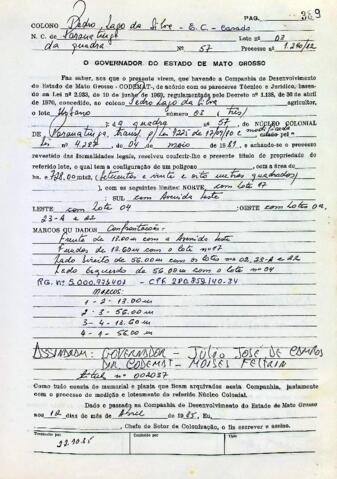 PAG. 369
COLONO Pedro Lago da Silva - E.C. - Casado
N. C. de Paranatinga Lote nº 03
da quadra Nº 57 Processo nº 1.260/82
O GOVERNADOR DO ESTADO DE MATO GROSSO
Faz saber, aos que a presente virem, que havendo a Companhia de Desenvolvimento
do Estado de Mato Grosso - CODEMAT, de acôrdo com os pareceres Técnico e Jurídico,
baseado na Lei nº 2.923, de 10 de junho de 1969, regulamentada pelo Decreto nº 1.138, de 30 de abril
de 1970, concedido, ao colono Pedro Lago da Silva agricultor,
o lote Urbano número 03 (três)
da quadra nº 57, DO NÚCLEO COLONIAL
DE Paranatinga, transf. p/ Lei 4225 de 17/09/80 e modificada pela
Lei nº 4.287 de 04 de maio de 1981, e achando-se
revestido das formalidades legais, resolveu conferir-lhe o presente título de propriedade
do referido lote, o qual tem a configuração de um polígono com a área de
728,00 mts2 (setecentos e vinte e oito metros quadrados)
), com os seguintes limites: NORTE com lote 07
SUL com Avenida Sete
LESTE com lote 04 :OESTE com lotes 02,
23-A e 22
MARCOS OU DADOS Confrontação:
Frente de 13.00 m com a Avenida Sete
Fundos de 13.00 m com o lote nº 07
Lado direito de 56.00 m com os lotes nº 02, 23-A e 22
Lado Esquerdo de 56.00 m com o lote nº 04
MARCOS:
1 - 2 - 13.00 m
2 - 3 - 56.00 m
3 - 4 - 13.00 m
4 - 1 - 56.00 m
ASSINARAM: GOVERNADOR - JULIO JOSÉ DE CAMPOS
DIR. CODEMAT - MOISES FELTRIN
Título nº 002037
Tudo como consta de memorial e planta que ficam arquivados nesta Companhia, juntamente
com o processo de medição e loteamento do referido Núcleo Colonial.
Dado e passado na Companhia de Desenvolvimento do Estado de Mato Grosso
aos 12 dias do mês de Abril de 1985, Eu,
, Chefe do Setor de Colonização, o fiz escrever e assino.